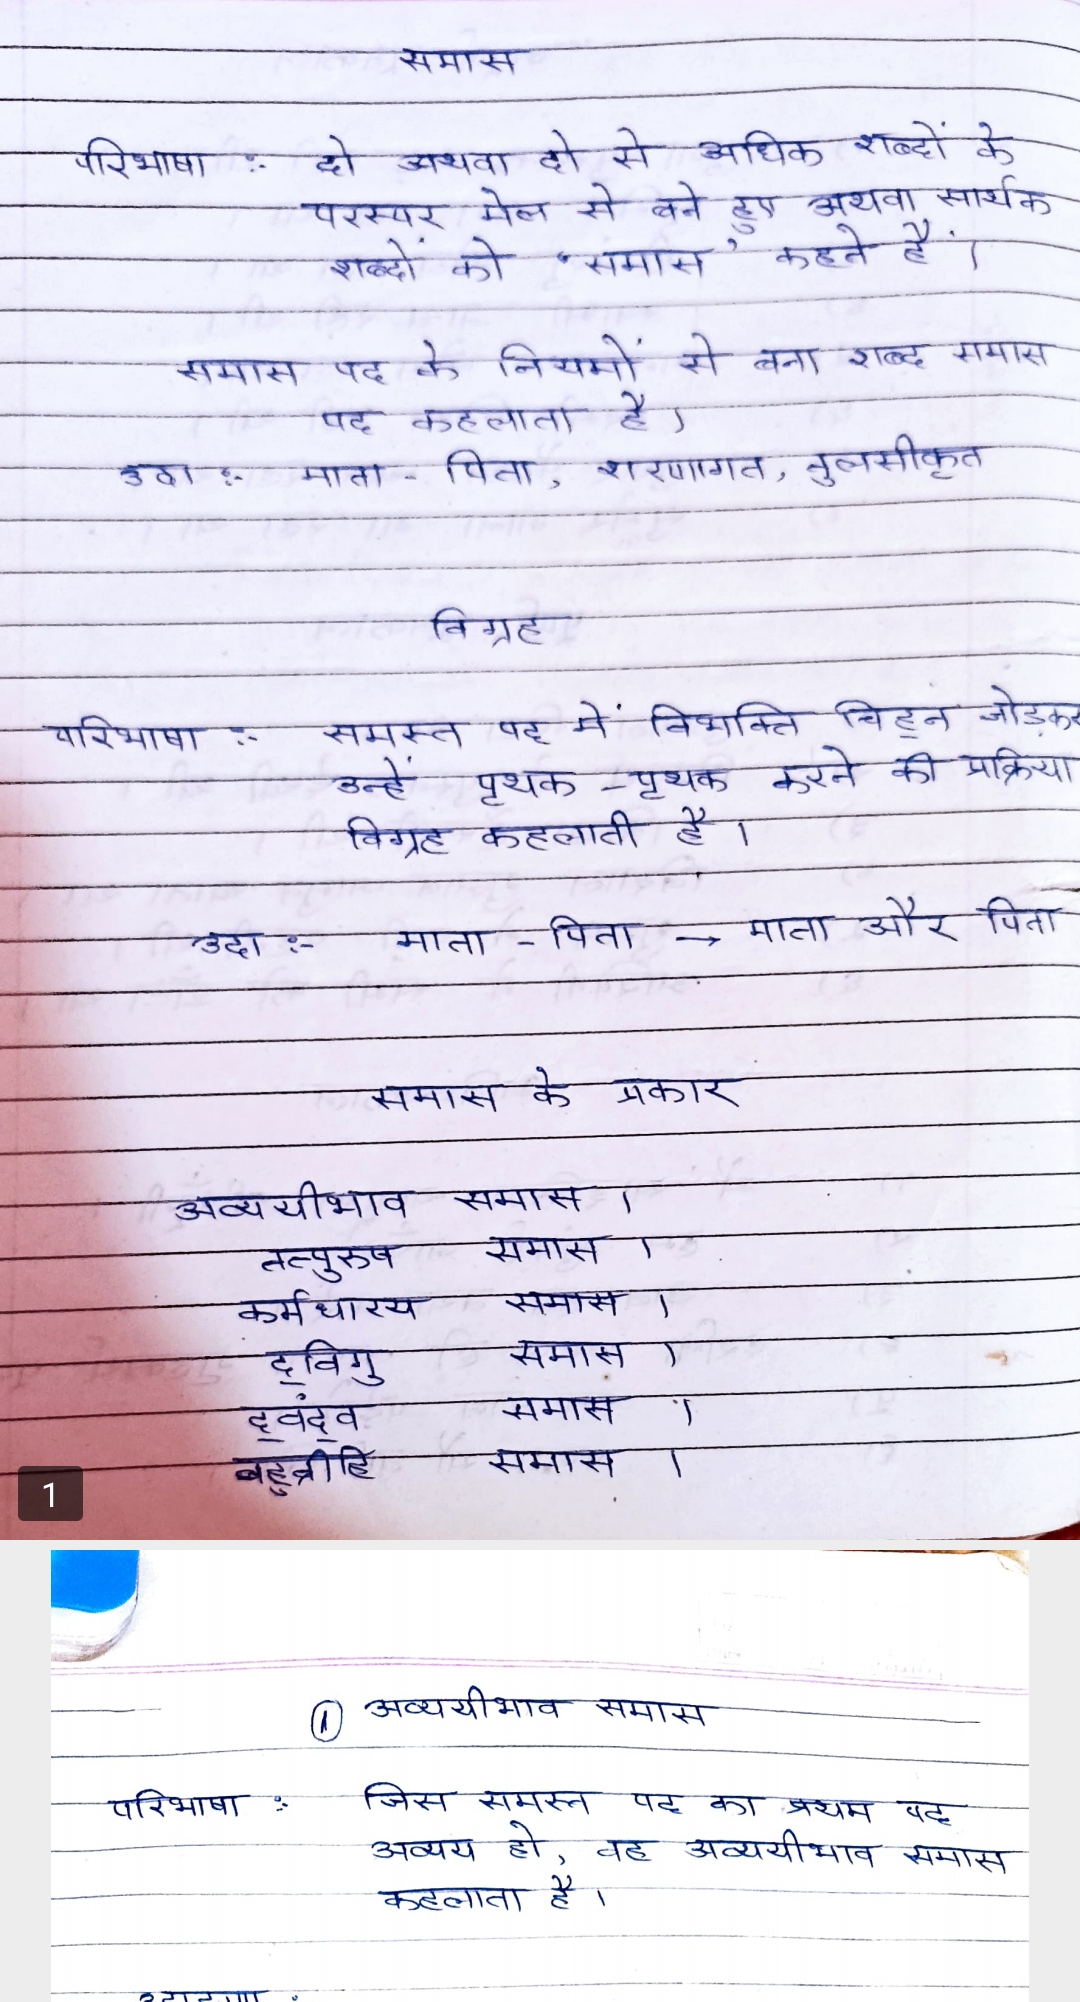 समास
परिभाषा :- दो अथवा दो से अधिक शब्दों के
परस्पर मेल से बने हुए अथवा सार्थक
शब्दों को 'समास' कहते हैं।
समास पद के नियमों से बना शब्द समास
पद कहलाता है।
उदा :- माता - पिता, शरणागत, तुलसीकृत
विग्रह
परिभाषा :- समस्त पद में विभक्ति चिह्न जोड़कर
उन्हें पृथक - पृथक करने की प्रक्रिया
विग्रह कहलाती है।
उदा :- माता - पिता → माता और पिता
समास के प्रकार
अव्ययीभाव समास।
तत्पुरुष समास।
कर्मधारय समास।
द्विगु समास।
द्वंद्व समास।
बहुव्रीहि समास।
1
① अव्ययीभाव समास
परिभाषा :- जिस समस्त पद का प्रथम पद
अव्यय हो, वह अव्ययीभाव समास
कहलाता है।